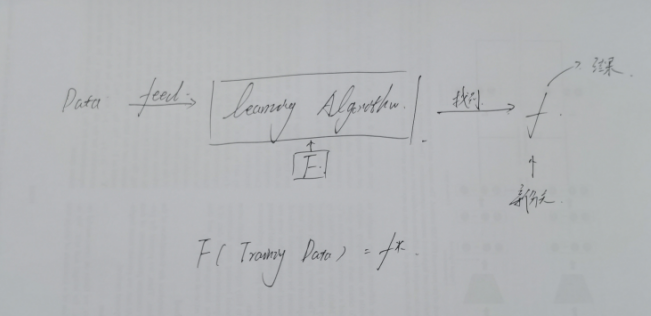 Data feed. Learning Algorithm. 找到 f. 结果.
F
新任务
F( Training Data ) = f*.